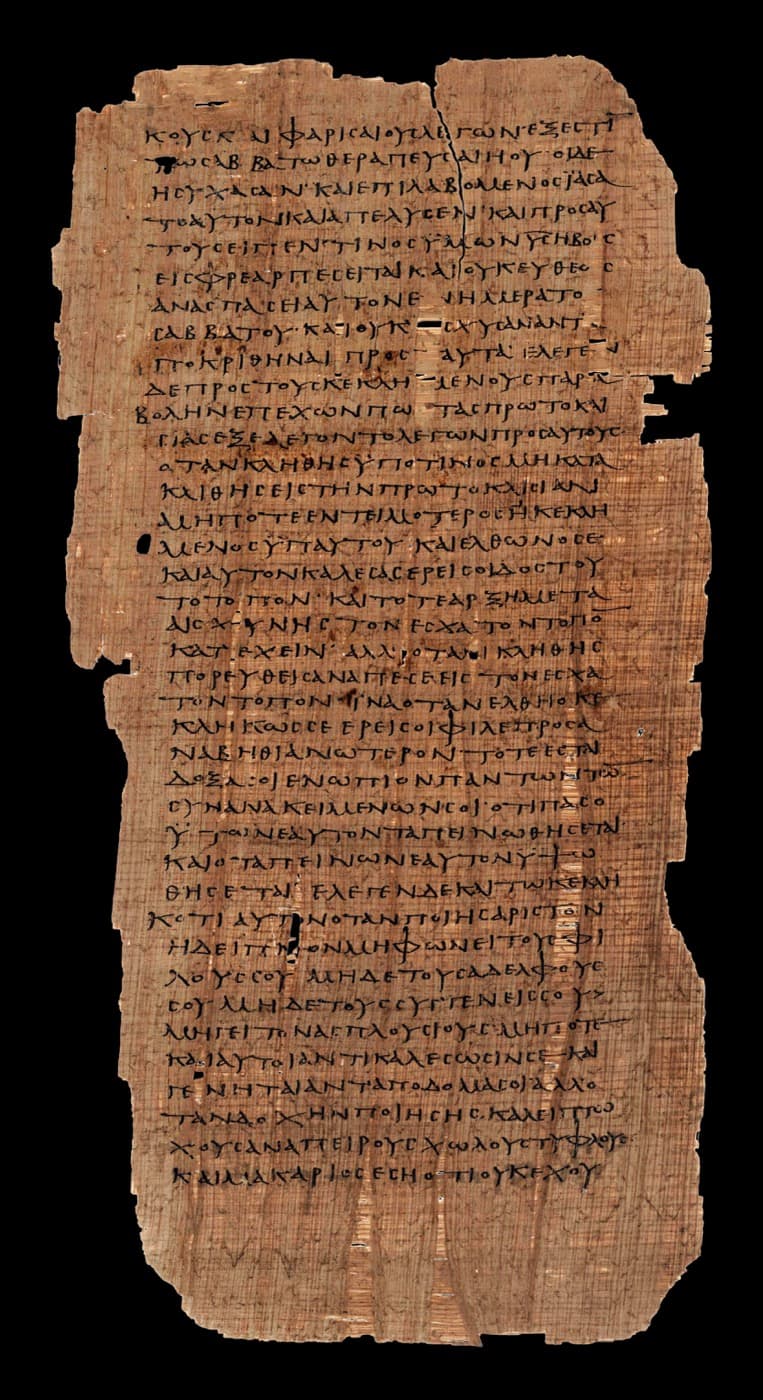 ΚΟΥϹΚΑΙΦΑΡΙϹΑΙΟΥϹΛΕΓΩΝΕΞΕϹΤΙ
ΤΩϹΑΒΒΑΤΩΘΕΡΑΠΕΥϹΑΙΗΟΥ·ΟΙΔΕ
ΗϹΥΧΑϹΑΝ·ΚΑΙΕΠΙΛΑΒΟΜΕΝΟϹΪΑϹΑ
ΤΟΑΥΤΟΝΚΑΙΑΠΕΛΥϹΕΝ·ΚΑΙΠΡΟϹΑΥ
ΤΟΥϹΕΙΠΕΝ·ΤΙΝΟϹΫΜΩΝΥϹΗΒΟΥϹ
ΕΙϹΦΡΕΑΡΠΕϹΕΙΤΑΙΚΑΙΟΥΚΕΥΘΕΩϹ
ΑΝΑϹΠΑϹΕΙΑΥΤΟΝΕΝΗΜΕΡΑΤΟ
ϹΑΒΒΑΤΟΥ·ΚΑΙΟΥΚΙϹΧΥϹΑΝΑΝΤΑ
ΠΟΚΡΙΘΗΝΑΙΠΡΟϹΤΑΥΤΑ·ΕΛΕΓΕΝ
ΔΕΠΡΟϹΤΟΥϹΚΕΚΛΗΜΕΝΟΥϹΠΑΡΑ
ΒΟΛΗΝΕΠΕΧΩΝΠΩϹΤΑϹΠΡΩΤΟΚΛΙ
ϹΙΑϹΕΞΕΛΕΓΟΝΤΟΛΕΓΩΝΠΡΟϹΑΥΤΟΥϹ
ΟΤΑΝΚΛΗΘΗϹΫΠΟΤΙΝΟϹΜΗΚΑΤΑ
ΚΛΙΘΗϹΕΙϹΤΗΝΠΡΩΤΟΚΛΙϹΙΑΝ
ΜΗΠΟΤΕΕΝΤΕΙΜΟΤΕΡΟϹΗΚΕΚΛΗ
ΜΕΝΟϹΫΠΑΥΤΟΥΚΑΙΕΛΘΩΝΟϹΕ
ΚΑΙΑΥΤΟΝΚΑΛΕϹΑϹΕΡΕΙϹΟΙΔΟϹΤΟΥ
ΤΟΤΟΠΟΝ·ΚΑΙΤΟΤΕΑΡΞΗΜΕΤΑ
ΑΙϹΧΥΝΗϹΤΟΝΕϹΧΑΤΟΝΤΟΠΟ
ΚΑΤΕΧΕΙΝ·ΑΛΛΟΤΑΝΚΛΗΘΗϹ
ΠΟΡΕΥΘΕΙϹΑΝΑΠΕϹΕΕΙϹΤΟΝΕϹΧΑ
ΤΟΝΤΟΠΟΝ·ΪΝΑΟΤΑΝΕΛΘΗΟΚΕ
ΚΛΗΚΩϹϹΕΕΡΕΙϹΟΙΦΙΛΕΠΡΟϹΑ
ΝΑΒΗΘΙΑΝΩΤΕΡΟΝ·ΤΟΤΕΕϹΤΑΙ
ΔΟΞΑϹΟΙΕΝΩΠΙΟΝΠΑΝΤΩΝΤΩ
ϹΥΝΑΝΑΚΕΙΜΕΝΩΝϹΟΙ·ΟΤΙΠΑϹΟ
ΫΨΩΝΕΑΥΤΟΝΤΑΠΕΙΝΩΘΗϹΕΤΑΙ
ΚΑΙΟΤΑΠΕΙΝΩΝΕΑΥΤΟΝΥΨΩ
ΘΗϹΕΤΑΙΕΛΕΓΕΝΔΕΚΑΙΤΩΚΕΚΛΗ
ΚΟΤΙΑΥΤΟΝΟΤΑΝΠΟΙΗϹΑΡΙϹΤΟΝ
ΗΔΕΙΠΝΟΝΜΗΦΩΝΕΙΤΟΥϹΦΙ
ΛΟΥϹϹΟΥΜΗΔΕΤΟΥϹΑΔΕΛΦΟΥϹ
ϹΟΥΜΗΔΕΤΟΥϹϹΥΓΓΕΝΕΙϹϹΟΥ
ΜΗΓΕΙΤΟΝΑϹΠΛΟΥϹΙΟΥϹ·ΜΗΠΟΤΕ
ΚΑΙΑΥΤΟΙΑΝΤΙΚΑΛΕϹΩϹΙΝϹΕΚΑΙ
ΓΕΝΗΤΑΙΑΝΤΑΠΟΔΟΜΑϹΟΙΑΛΛΟ
ΤΑΝΔΟΧΗΝΠΟΙΗϹΗϹ·ΚΑΛΕΙΠΤΩ
ΧΟΥϹΑΝΑΠΕΙΡΟΥϹΧΩΛΟΥϹΤΥΦΛΟΥϹ
ΚΑΙΜΑΚΑΡΙΟϹΕϹΗΟΤΙΟΥΚΕΧΟΥ